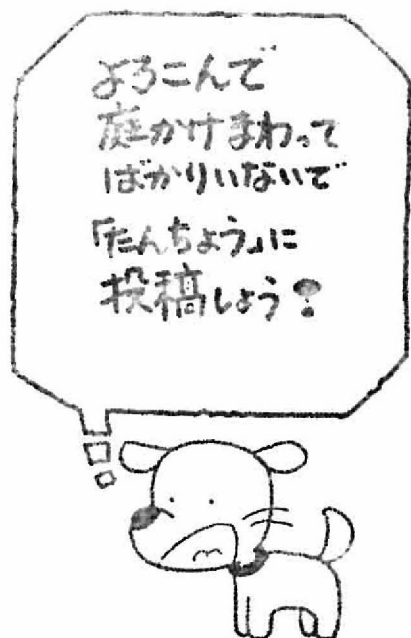 よろこんで
庭かけまわって
ばかりいないで
「たんちょう」に
投稿しよう!